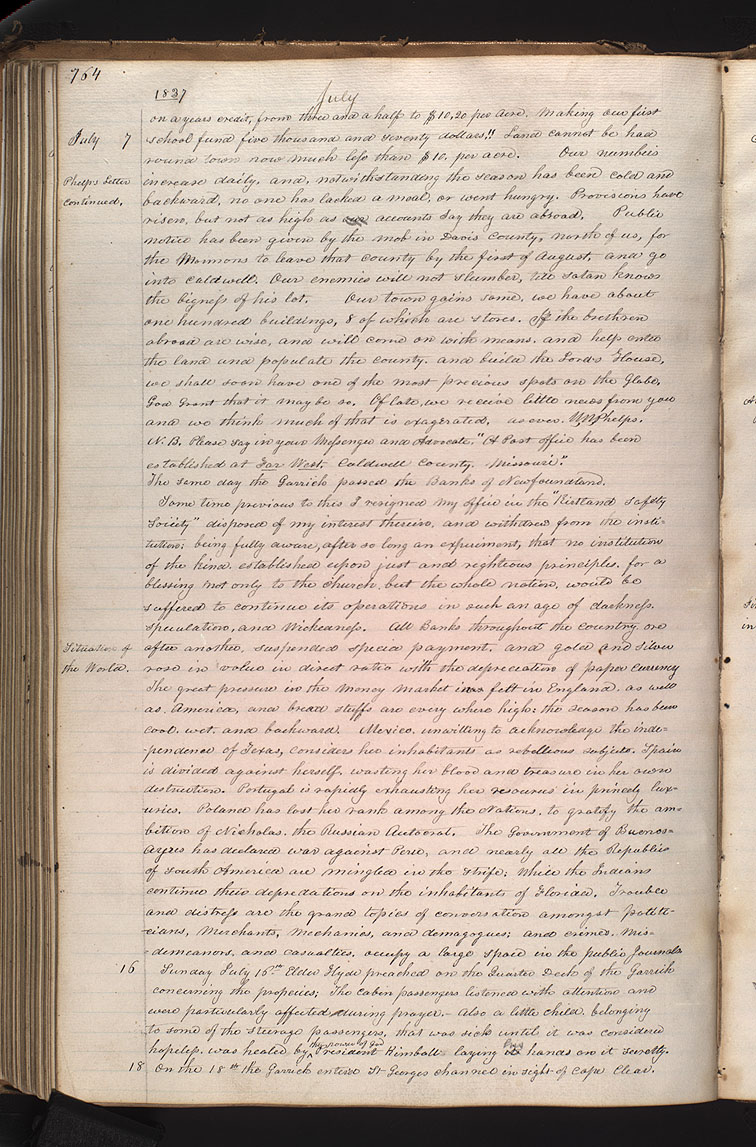 764
1837
July
on a years credit, from three and a half to $10,20 per acre. Making our first
July 7
school fund five thousand and seventy dollars!! Land cannot be had
round town now much less than $10, per acre. Our numbers
Phelps Letter
continued.
increase daily, and, notwithstanding the season has been cold and
backward, no one has lacked a meal, or went hungry. Provisions have
risen, but not as high as accounts say they are abroad. Public
notice has been given by the mob in Davis County, north of us, for
the Mormons to leave that county by the first of August, and go
into Caldwell. Our enemies will not slumber, till Satan knows
the bigness of his lot. Our town gains some, we have about
one hundred buildings, 8 of which are stores. If the brethren
abroad are wise, and will come on with means, and help enter
the land and populate the county, and build the Lord's House,
we shall soon have one of the most precious spots on the Globe,
God Grant that it may be so. Of late, we receive little news from you
and we think much of that is exagerated. as ever. W W Phelps.
N. B. Please say in your Messenger and Advocate. "A Post office has been
established at Far West, Caldwell County, Missouri".
The same day the Garrick passed the Banks of Newfoundland.
Some time previous to this I resigned my office in the "Kirtland Safety
Society" disposed of my interest therein, and withdrew from the insti-
tution; being fully aware, after so long an experiment, that no institution
of the kind, established upon just and righteous principles, for a
blessing not only to the church, but the whole nation, would be
suffered to continue its operations in such an age of darkness,
speculation, and Wickedness. All Banks throughout the country one
Situation of
the World.
after another, suspended specie payment, and gold and silver
rose in value in direct ratio with the depreciation of paper currency
The great pressure in the Money Market is felt in England, as well
as America, and bread stuffs are every where high; the season has been
cool, wet, and backward. Mexico, unwilling to acknowledge the inde-
-pendence of Texas, considers her inhabitants as rebellious subjects. Spain
is divided against herself, wasting her blood and treasure in her own
destruction. Portugal is rapidly exhausting her resources in princely lux-
uries. Poland has lost her rank among the Nations, to gratify the am-
bition of Nicholas, the Russian Autocrat. The Government of Buenos-
Ayres has declared war against Peru, and nearly all the Republics
of South America are mingled in the strife; While the Indians
continue their depredations on the inhabitants of Florida. Trouble
and distress are the grand topics of conversation amongst Politi-
cians, Merchants, Mechanics, and demagogues; and crimes, Mis-
-demeanors, and casualties, occupy a large space in the public Journals.
16
Sunday July 16th Elder Hyde preached on the Quarter Deck of the Garrick
concerning the propecies; The Cabin passengers listened with attention and
were particularly affected during prayer. Also a little child, belonging
to some of the steerage passengers, that was sick until it was considered
hopeless, was healed by the power of God President Kimball laying hands on it secretly.
18
On the 18th the Garrick entered St Georges channel in sight of Cape Clear.